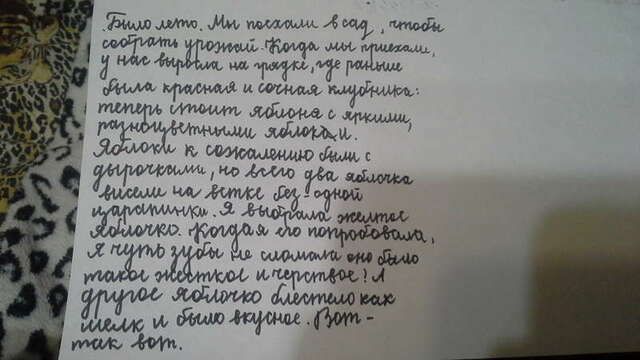 Было лето. Мы поехали в сад, чтобы
собрать урожай. Когда мы приехали,
у нас выросла на грядке, где раньше
была красная и сочная клубника:
теперь стоит яблоня с яркими,
разноцветными яблоками.
Яблоки к сожалению были с
дырочками, но всего два яблочка
висели на ветке без одной
царапинки. Я выбрала желтое
яблочко. Когда я его попробовала,
я чуть зубы не сломала оно было
такое жесткое и черствое! А
другое яблочко блестело как
шелк и было вкусное. Вот-
так вот.